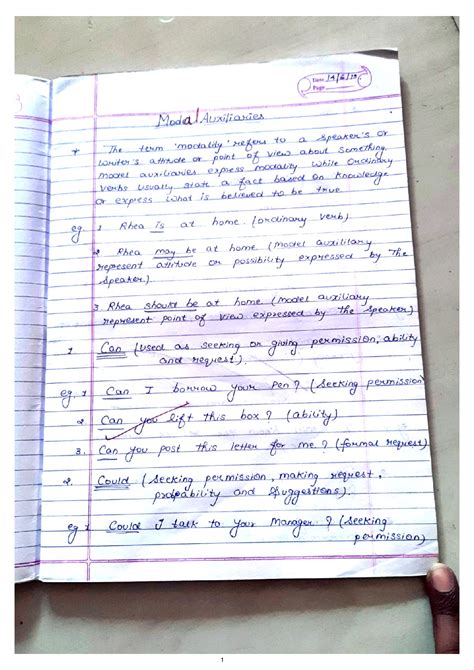 Date 14/6/19
Page
Modal Auxiliaries
* The term 'modality' refers to a speaker's or
writer's attitude or point of view about something
model auxiliaries express modality while ordinary
verbs usually state a fact based on knowledge
or express what is believed to be true.
eg. 1 Rhea is at home. (ordinary verb).
2 Rhea may be at home (model auxiliary
represent attitude or possibility expressed by the
speaker).
3. Rhea should be at home (model auxiliary
represent point of view expressed by the speaker)
1 Can (used as seeking or giving permission, ability
and request).
eg. 1 Can I borrow your pen? (seeking permission
2. Can you lift this box? (ability)
3. Can you post this letter for me? (formal request)
2. Could (seeking permission, making request,
probability and suggestions).
eg 1 Could I talk to your manager? (seeking
permission)
1